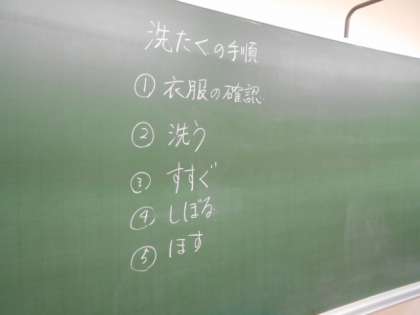 洗たくの手順
① 衣服の確認
② 洗う
③ すすぐ
④ しぼる
⑤ ほす